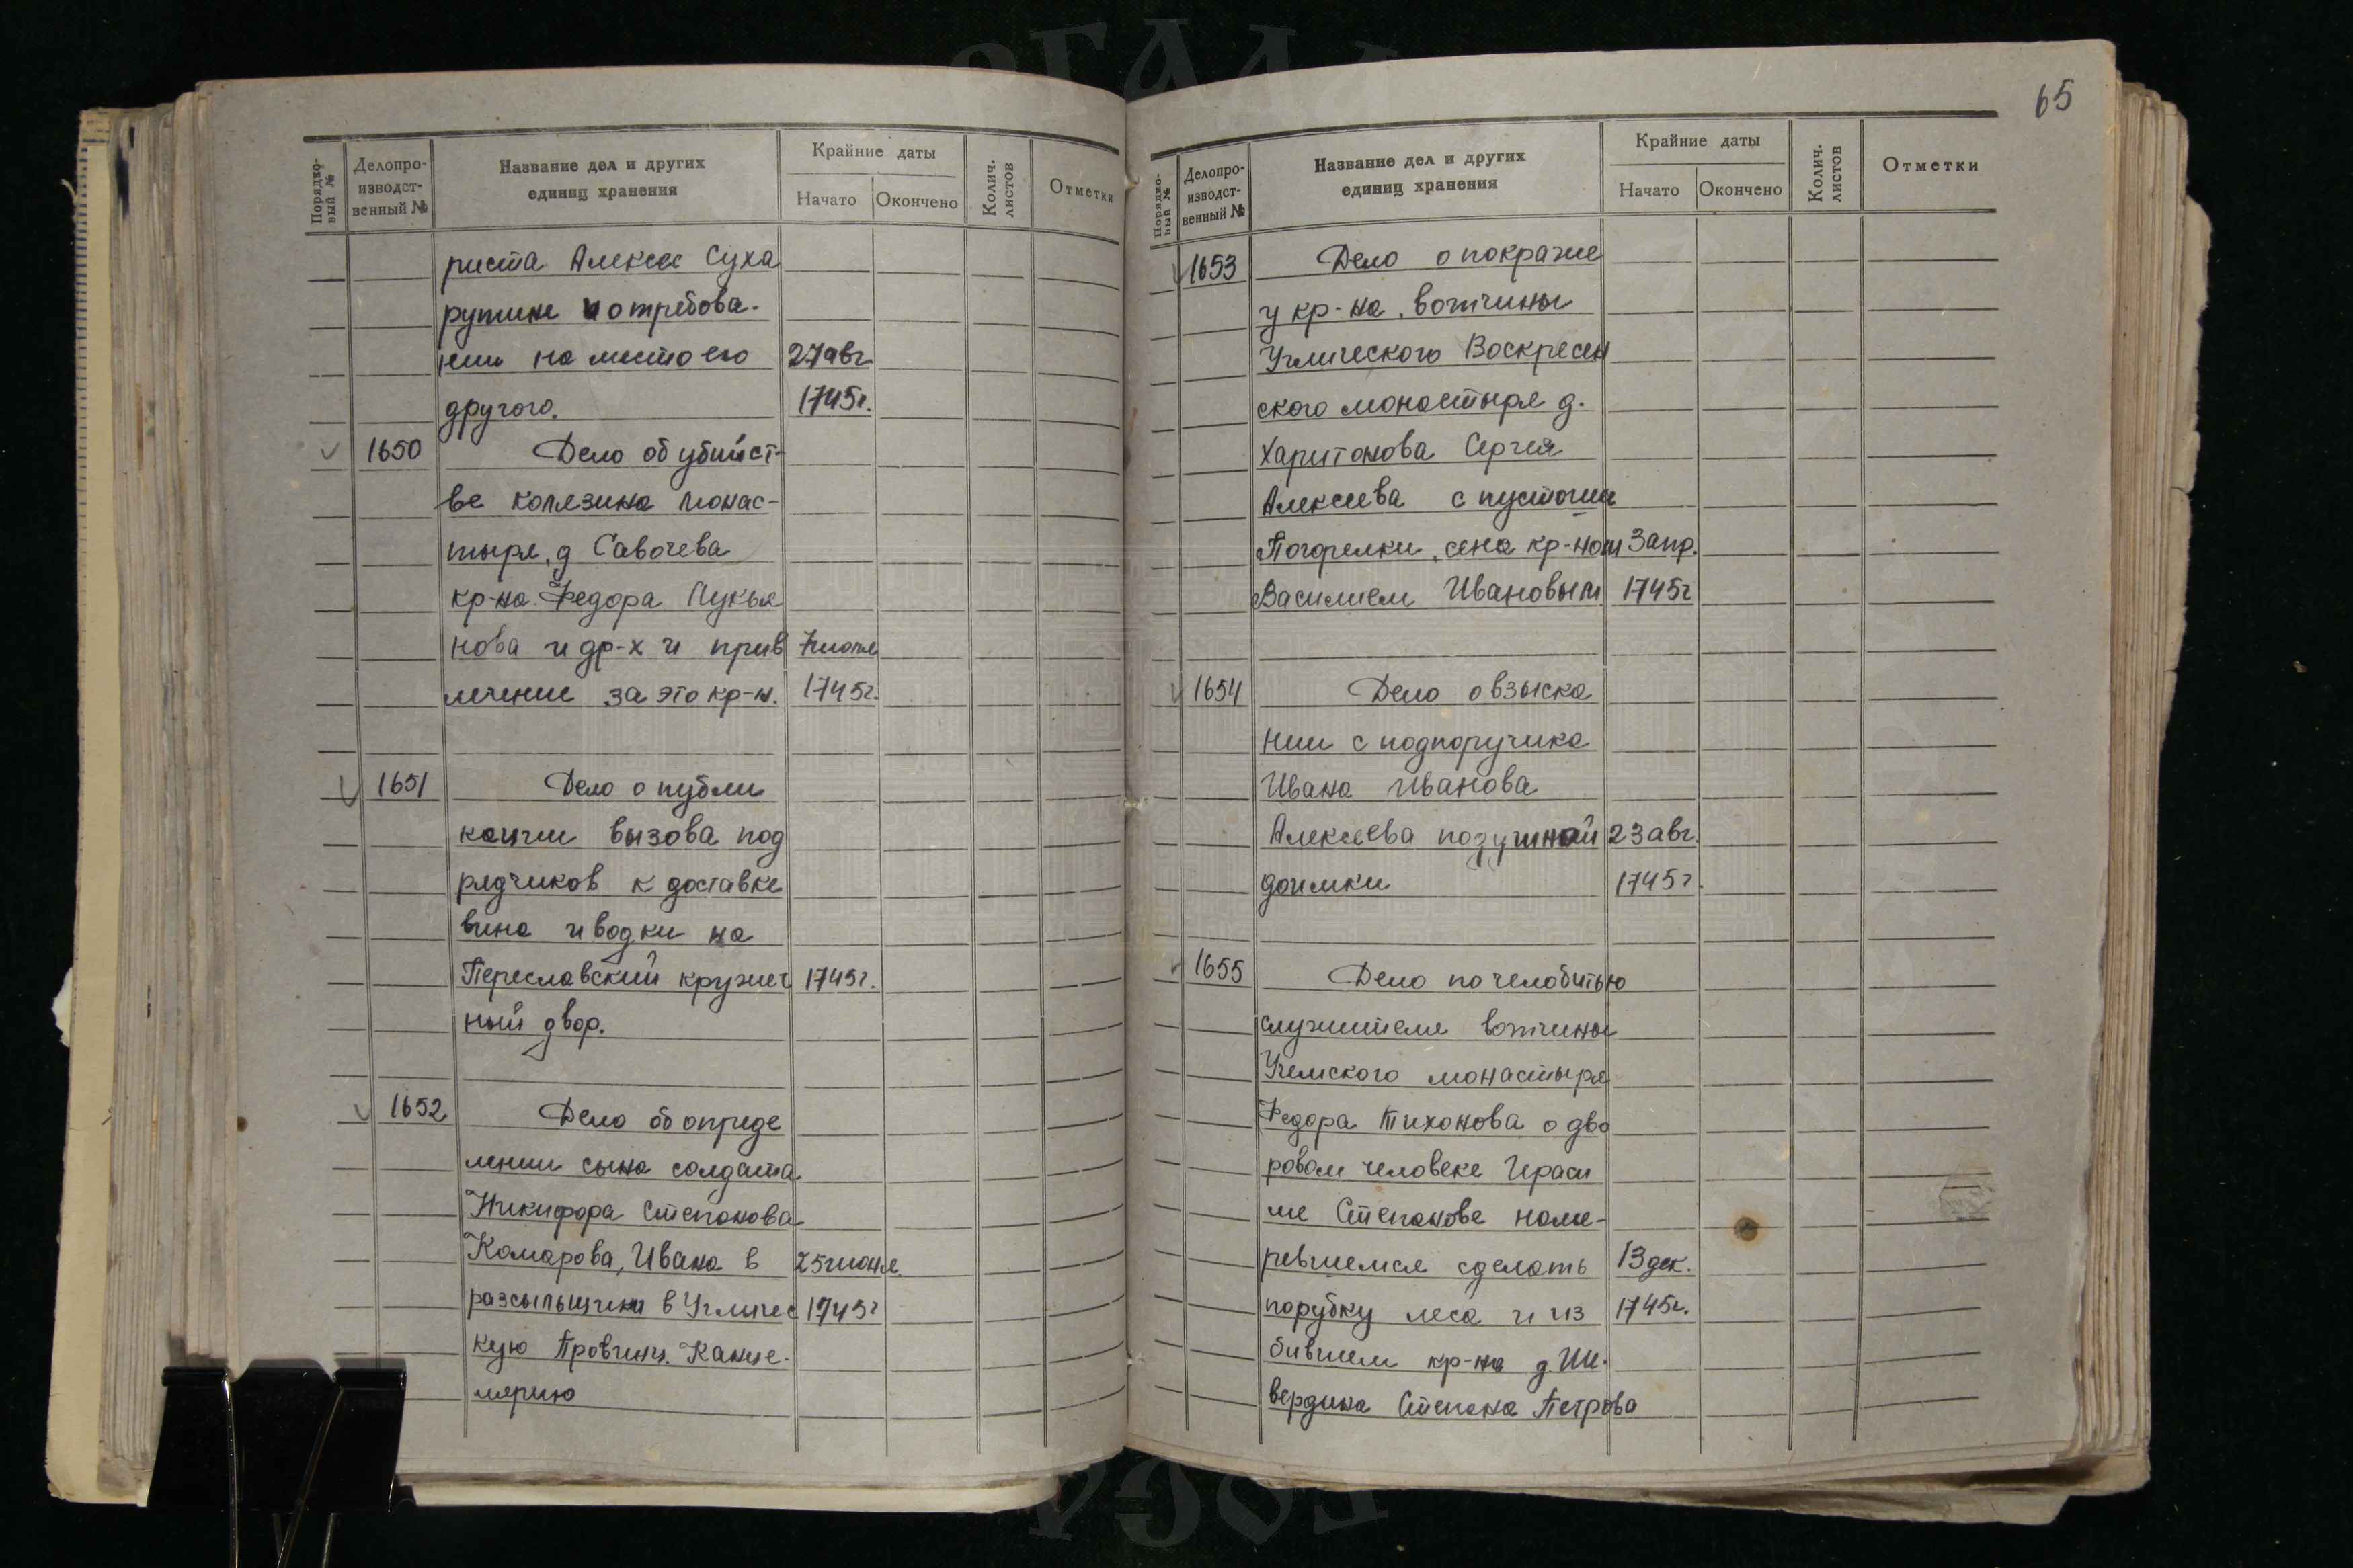 65
Порядко-
вый №
Делопро-
изводст-
венный №
Название дел и других
единиц хранения
Крайние даты
Начато
Окончено
Колич.
листов
Отметки
риста Алексее Суха
рутине и отребова-
нии на место его 27 авг
другого. 1745г.
1650 Дело об убийст-
ве Колязина монас-
тыря, д Савочева
кр-на Федора Лукья
нова и др-х и прив 7 июля
лечение за это кр-н. 1745г.
1651 Дело о публи
кации вызова под
рядчиков к доставке
вина и водки на
Переславский кружеч 1745г.
ный двор.
1652 Дело об опреде
лении сына солдата
Никифора Степанова
Комарова, Ивана в 25 июня
разсыльщики в Угличес 1745г
кую Провинц. Канце-
лярию
Порядко-
вый №
Делопро-
изводст-
венный №
Название дел и других
единиц хранения
Крайние даты
Начато
Окончено
Колич.
листов
Отметки
1653 Дело о покраже
у кр-на, вотчины
Угличского Воскресен
ского монастыря д.
Харитонова Сергея
Алексеева с пустоши
Погорелки, сена кр-ном 3 апр.
Василием Ивановым 1745г
1654 Дело о взыска
нии с подпоручика
Ивана Иванова
Алексеева подушной 23 авг.
доимки 1745г.
1655 Дело по челобитью
служителя вотчины
Учемского монастыря
Федора Тихонова о дво
ровом человеке Гераси
ме Степанове наме-
ревшемся сделать 13 дек.
порубку леса и из 1745г.
бившем кр-на д Ше-
вердина Степана Петрова